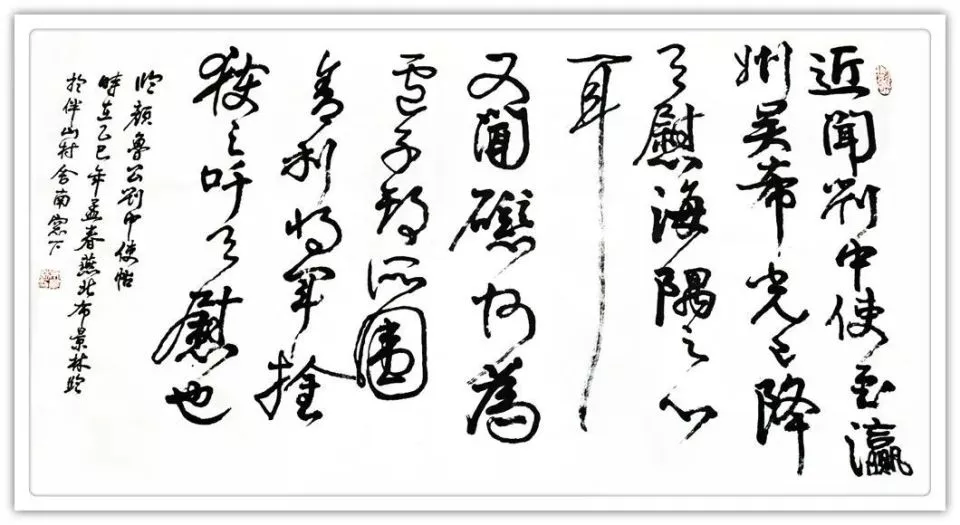 近聞劉中使至瀛
州吳希光已降
足慰海隅之心
耳
又聞磁州為
盧子期所圍
舍利將軍擒
獲之吁足慰也
臨顏魯公劉中使帖
時在乙巳年孟春燕北布景林臨
於伴山村舍南窗下